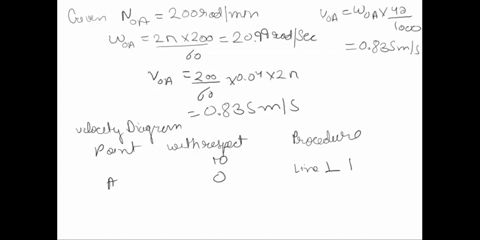 Given N_OA = 200rad/min
ω_OA = 2π×200/60 = 20.94rad/sec
V_OA = 200/60 × 0.04 × 2π
= 0.835m/s
V_OA = ω_OA × 42/1000
= 0.835m/s
velocity Diagram
Point with respect to Procedure
A O Line ⊥